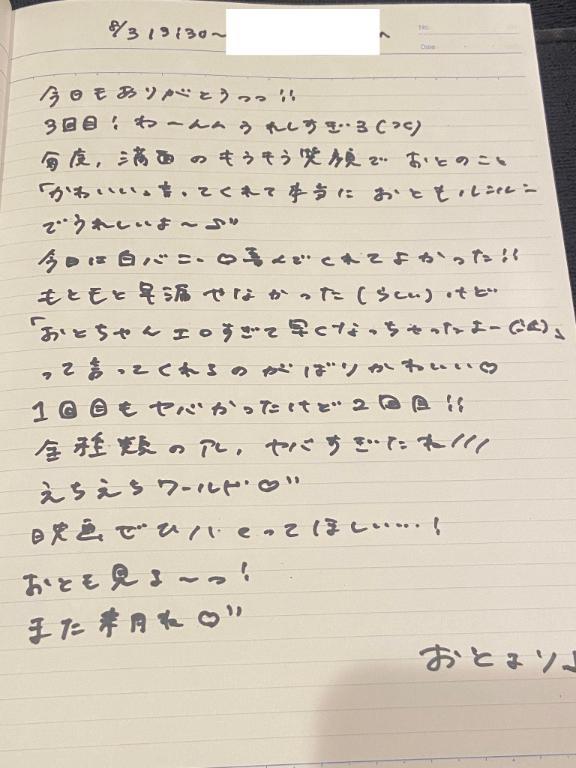 8/3 19:30〜 へ
No.
Date
今日もありがとうっっ!!
3回目! わーんんうれしすぎる(>c<)
毎度、満面のもうもう笑顔で おとのこと
「かわいい」言ってくれて本当に おともルンルン
でうれしいよ〜♪"
今日は白バニー♡喜んでくれてよかった!!
もともと早漏やなかった(らしい)けど
「おとちゃんエロすぎて早くなっちゃったよー」
って言ってくれるのがばりかわいい♡
1回目もヤバかったけど2回目!!
全種類のアレ、ヤバすぎたね///
えちえちワールド♡"
映画ぜひ とってほしい…!
おとも見る〜っ!
また来月ね♡"
おとより♪